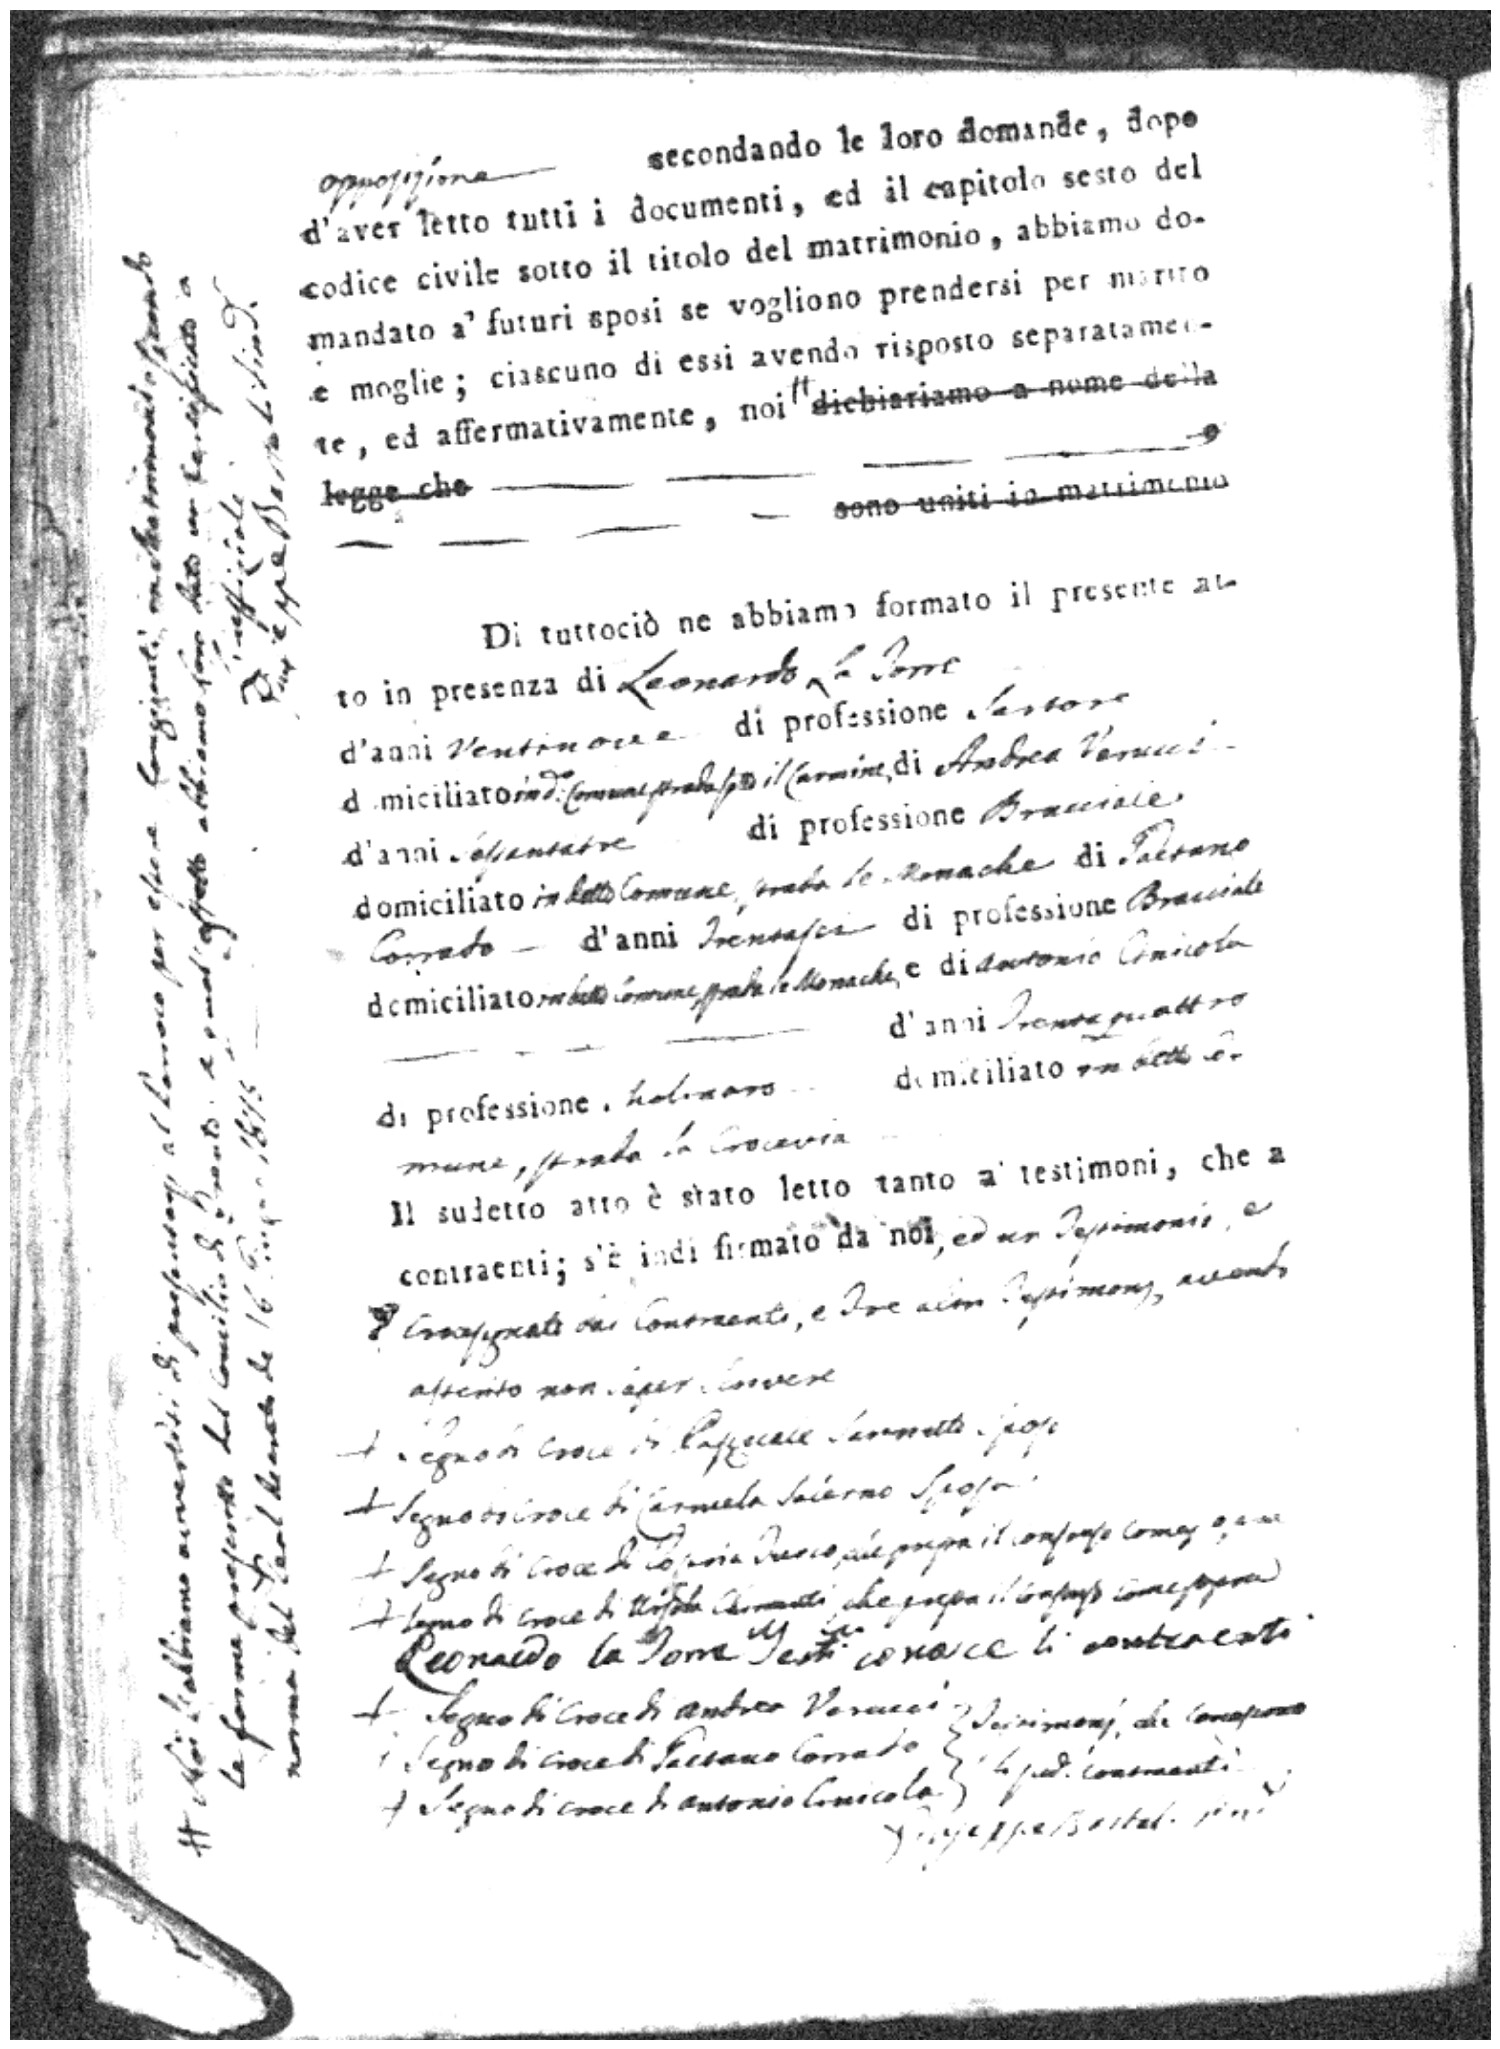 opposizione secondando le loro domande, dopo
d'aver letto tutti i documenti, ed il capitolo sesto del
codice civile sotto il titolo del matrimonio, abbiamo do-
mandato a' futuri sposi se vogliono prendersi per marito
e moglie; ciascuno di essi avendo risposto separatamen-
te, ed affermativamente, noi # dichiariamo a nome della
legge che ,
sono uniti in matrimonio
Di tuttociò ne abbiamo formato il presente at-
to in presenza di Leonardo la Torre
d'anni Ventinove di professione Sartore
domiciliato in do. Comune strada il Carmine, di Andrea Verucci
d'anni Sessantatre di professione Bracciale
domiciliato in detto Comune, strada le Monache di Gaetano
Corrado d'anni Trentasei di professione Bracciale
domiciliato in detto Comune, strada le Monache, e di Antonio Cinicola
d'anni Trentaquattro
di professione Molinaro domiciliato in detto Co-
mune, strada la Crocevia
Il sudetto atto è stato letto tanto a' testimoni, che a
contraenti; s'è indi firmato da noi, ed un Testimonio, e
Crocesignato dai Contraenti, e Tre altri Testimonj, avendo
asserito non saper scrivere
+ Segno di Croce di Pasquale Sposo
+ Segno di Croce di Carmela Salerno Sposa
+ Segno di Croce di che presta il consenso come
+ Segno di Croce di Ursola che presta il consenso come sopra
Leonardo la Torre Testimonio conosce li contraenti
+ Segno di Croce di Andrea Verucci
+ Segno di Croce di Gaetano Corrado
+ Segno di croce di Antonio Cinicola
Testimonj, che conoscono
li sud. contraenti
Giuseppe Bartol. Sind.
# Noi l'abbiamo avvertiti di presentarsi al Parroco per essere Congiunti in Matrimonio secondo
la forma prescritta dal Concilio di Trento, a quale effetto abbiamo loro dato un Certificato a
norma del Real decreto de 16 Giugno 1815 L'uffiziale
Giuseppe Bartol. Sind.